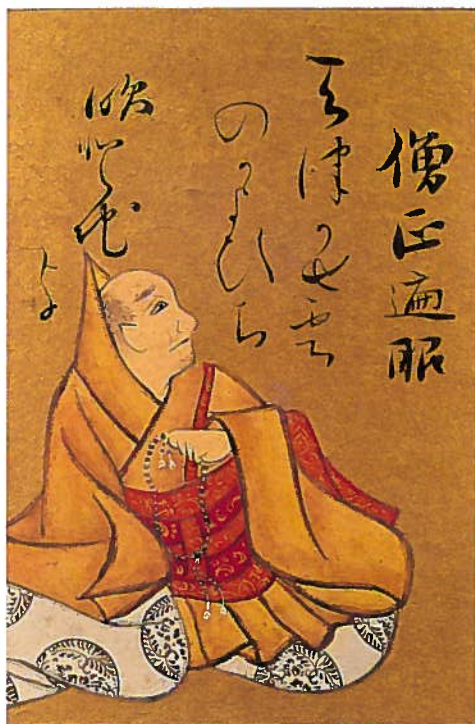 僧正遍昭
天津かせ雲
のかよひち
吹とち
よ